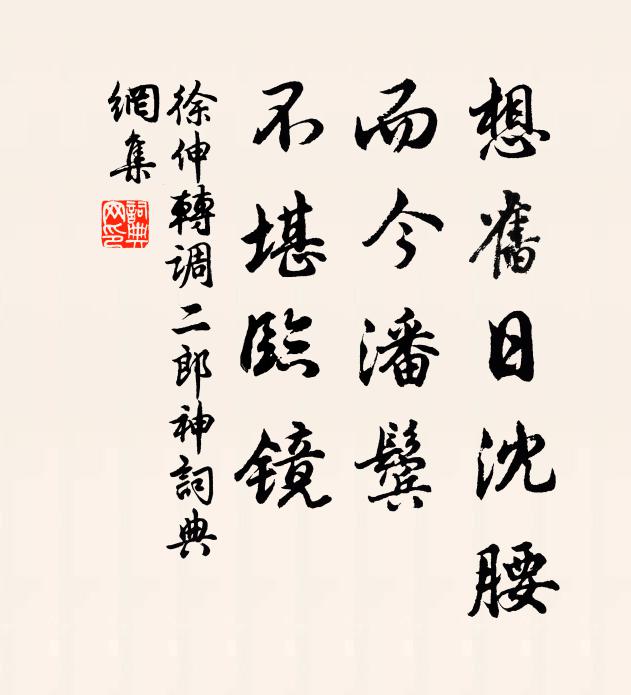 想舊日沈腰
而今潘鬢
不堪臨鏡
徐伸轉調二郎神詞典
網集
詞典
网印